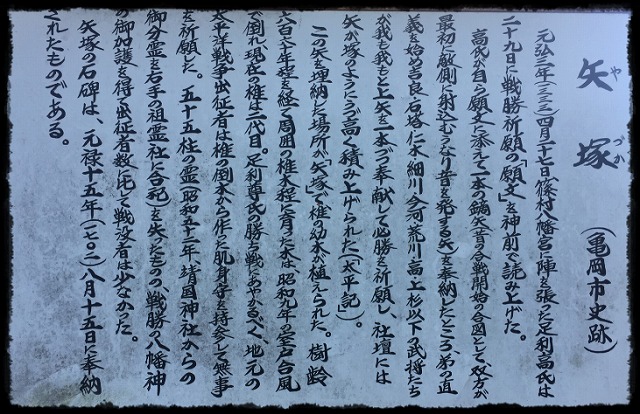 矢塚
や
づか
（亀岡市史跡）
元弘三年（一三三三）四月二十七日、篠村八幡宮に陣を張った足利高氏は
二十九日に戦勝祈願の「願文」を神前で読み上げた。
高氏が自ら願文に添えて一本の鏑矢（昔、合戦開始の合図として双方が
最初に敵側に射込むうなり音を発する矢）を奉納したところ、弟の直
義を始め吉良・石塔・仁木・細川・今河・荒川・高・上杉以下の武将たち
が我も我もと上矢を一本ずつ奉献して必勝を祈願し、社壇には
矢が塚のようにうず高く積み上げられた（「太平記」）。
この矢を埋納した場所が「矢塚」で椎の幼木が植えられた。樹齢
六百六十年程を経て周囲の椎木程に育った木は、昭和九年の室戸台風
で倒れ、現在の椎は二代目。足利尊氏勝ち戦にあやかるべく、地元の
太平洋戦争出征者は椎の倒木から作た肌身守を持参して無事
を祈願した。五十五柱の霊（昭和五十二年、靖国神社からの
御分霊を右手の祖霊社に合祀）を失ったものの、戦勝・八幡神
の御加護を得て出征者数に比して戦没者は少なかった。
矢塚の石碑は、元禄十五年（一七〇二）八月十五日に奉納
されたものである。